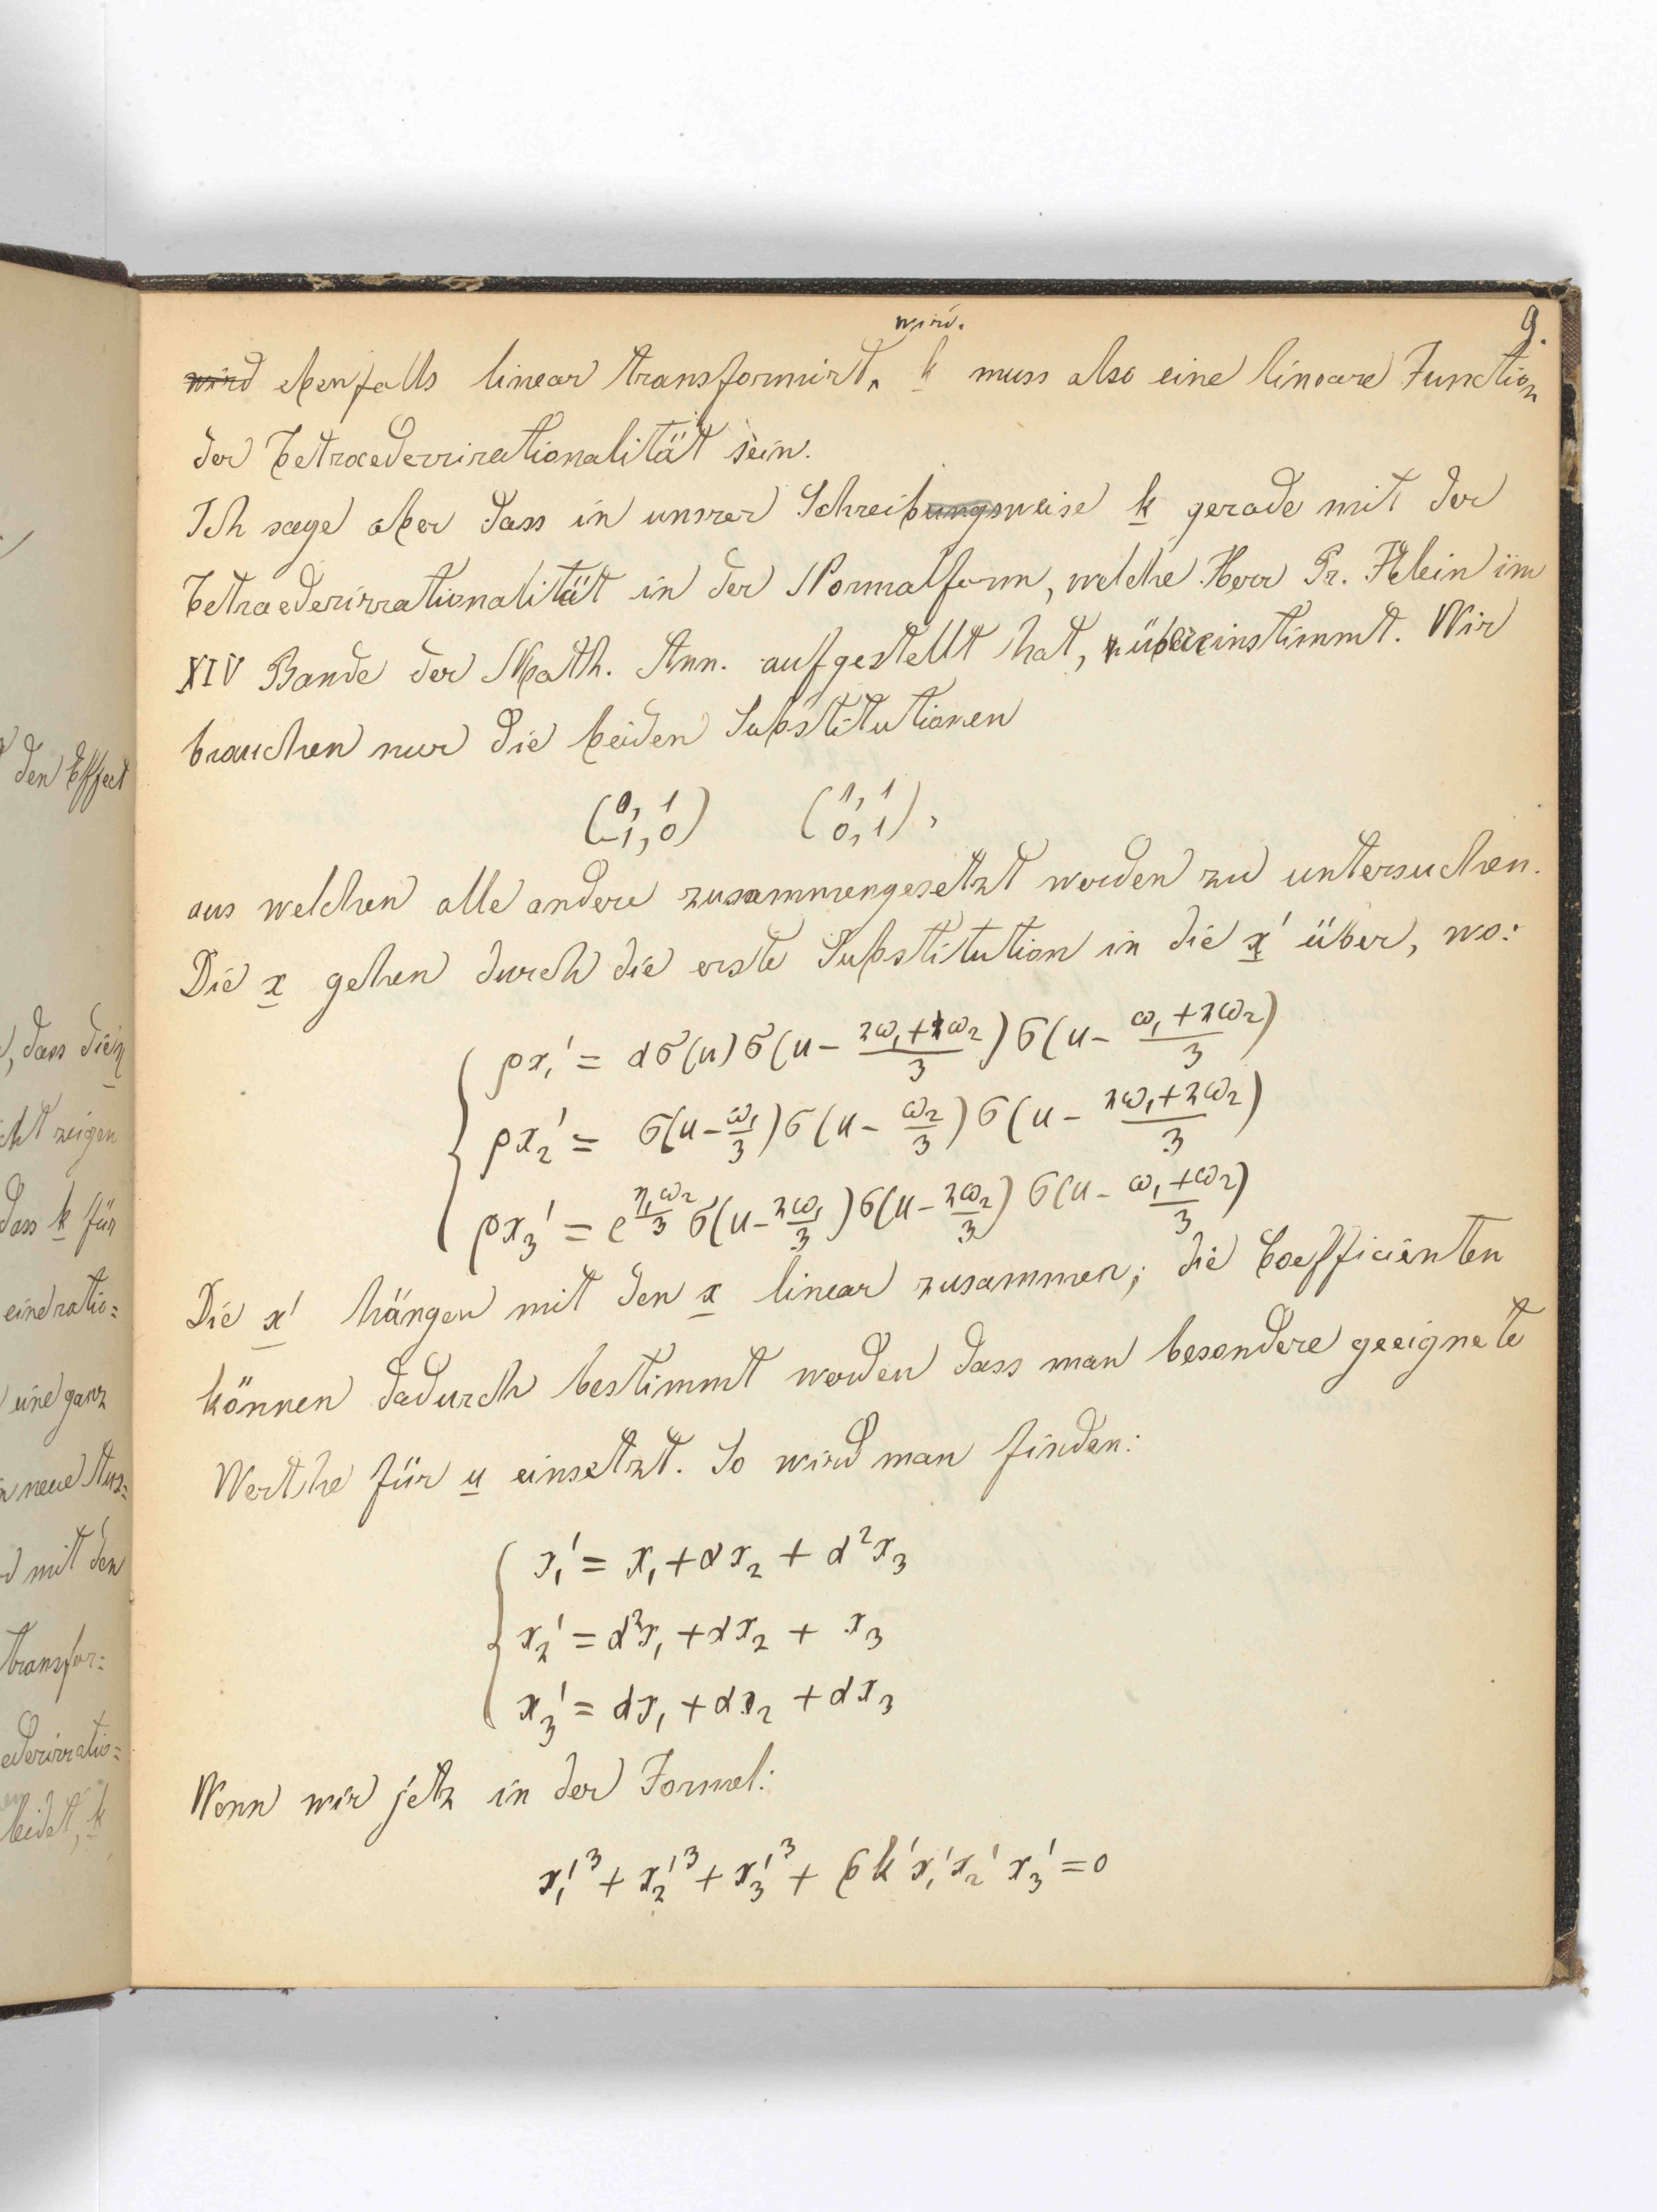 9.
wird.
wird ebenfalls linear transformirt. k muss also eine lineare Function
der Tetraederrirationalität sein.
Ich sage aber dass in unsrer Schreibungsweise k gerade mit der
Tetraederirrationalität in der Normalform, welche Herr Pr. Klein im
XIV Bande der Math. Ann. aufgestellt hat, übereinstimmt. Wir
brauchen nur die beiden Substitutionen
(0, 1 / -1, 0) (1, 1 / 0, 1),
aus welchen alle andere zusammengesetzt werden zu untersuchen.
Die x gehen durch die erste Substitution in die x' über, wo:
ρx₁' = α σ(u) σ(u - (2ω₁+ω₂)/3) σ(u - (ω₁+2ω₂)/3)
ρx₂' = σ(u - ω₁/3) σ(u - ω₂/3) σ(u - (2ω₁+2ω₂)/3)
ρx₃' = e^(η₁ω₂/3) σ(u - 2ω₁/3) σ(u - 2ω₂/3) σ(u - (ω₁+ω₂)/3)
Die x' hängen mit den x linear zusammen; die Coefficienten
können dadurch bestimmt werden dass man besondere geeignete
Werthe für u einsetzt. So wird man finden:
x₁' = x₁ + αx₂ + α²x₃
x₂' = α²x₁ + αx₂ + x₃
x₃' = αx₁ + αx₂ + αx₃
Wenn wir jetz in der Formel:
x₁'³ + x₂'³ + x₃'³ + 6k'x₁'x₂'x₃' = 0
den Effect
, dass die
cht zeigen
dass k für
eine ratio=
eine ganz
neue Aus=
mit den
transfor=
ederirratio=
leidet, k